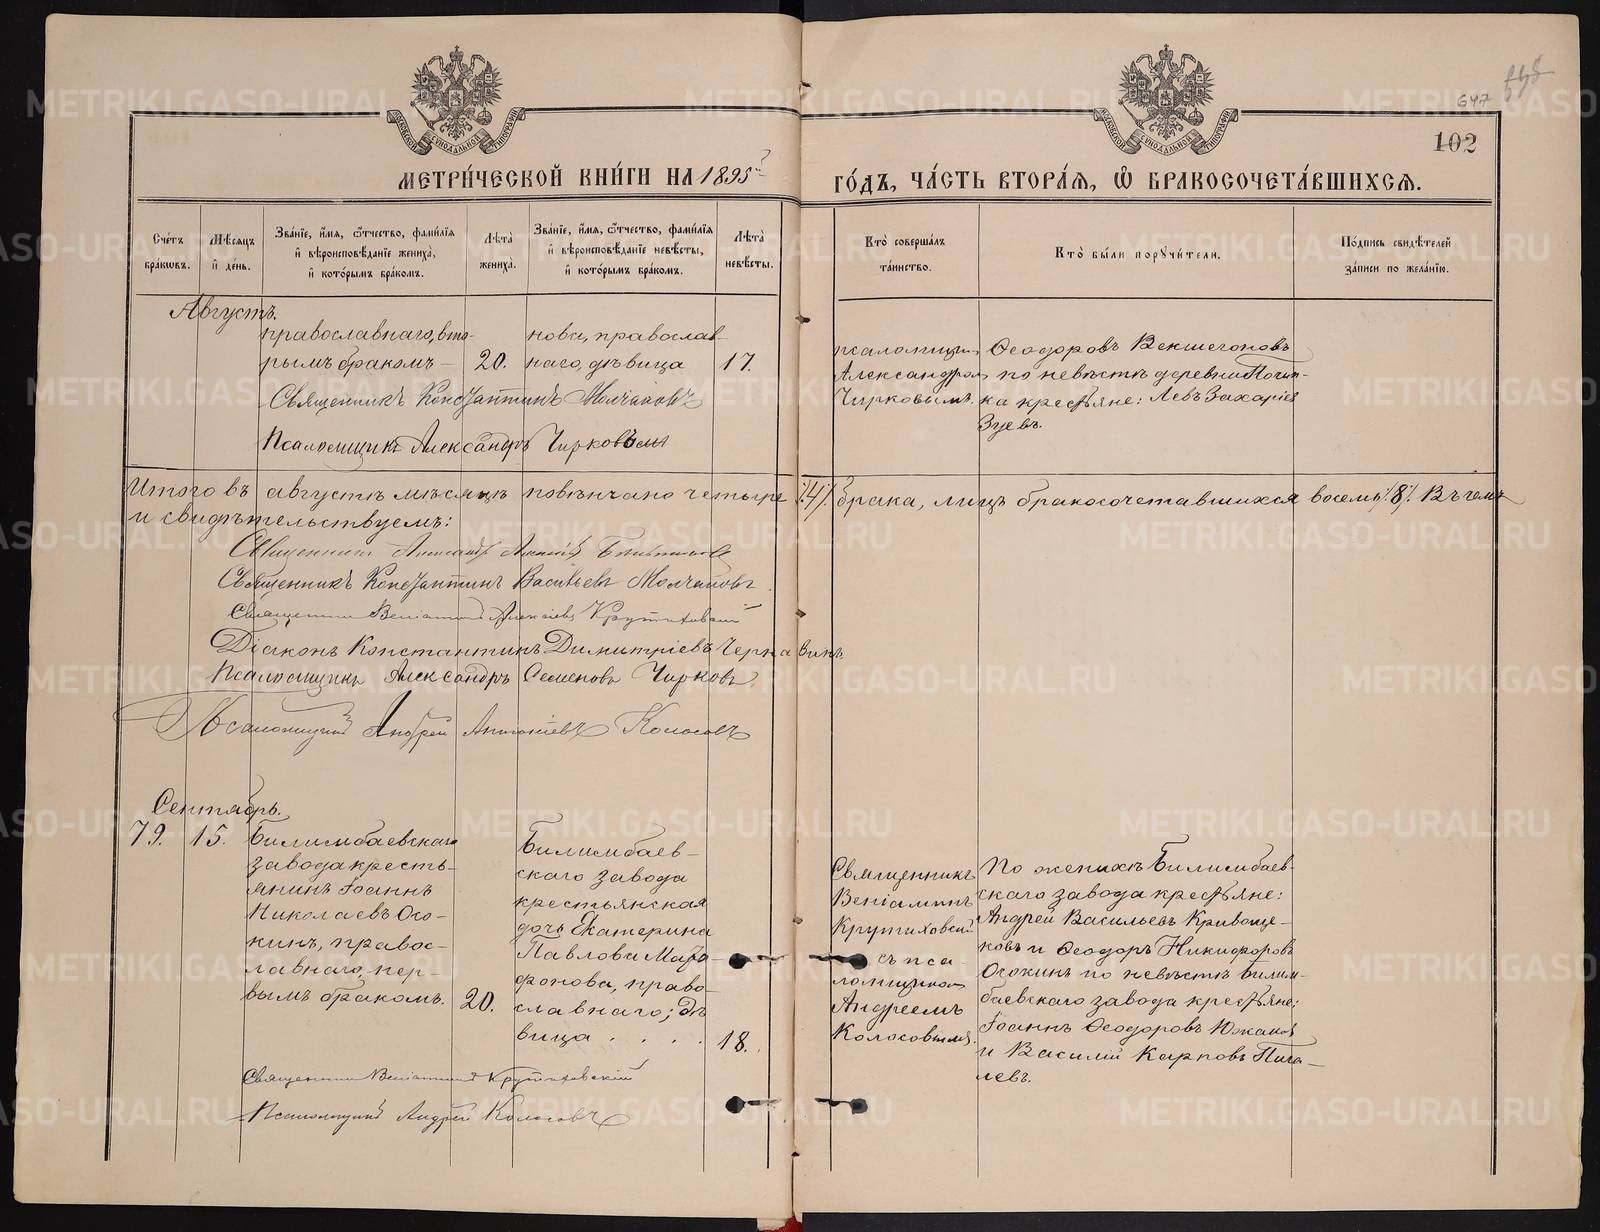 647
102
МОСКОВСКОЙ СѴНОДАЛЬНОЙ ТИПОГРАФІИ
МОСКОВСКОЙ СѴНОДАЛЬНОЙ ТИПОГРАФІИ
МЕТРИ́ЧЕСКОЙ КНИ́ГИ НА 1895й
ГО́ДЪ, ЧА́СТЬ ВТОРА́Я, Ѽ БРАКОСОЧЕТА́ВШИХСЯ.
Сче́тъ бра́кѡвъ.
Мѣ́сяцъ и҆ де́нь.
Зва́нїе, и҆́мя, ѻ҆́тчество, фами́лїя и҆ вѣроисповѣ́данїе жениха̀, и҆ кото́рымъ бра́комъ.
Лѣ́та жениха̀.
Зва́нїе, и҆́мя, ѻ҆́тчество, фами́лїя и҆ вѣроисповѣ́данїе невѣ́сты, и҆ кото́рымъ бра́комъ.
Лѣ́та невѣ́сты.
Кто̀ соверша́лъ та́инство.
Кто̀ бы́ли порꙋчи́тели.
По́дпись свидѣ́телей за́писи по жела́нїю.
Августъ.
православнаго, вто-
рымъ бракомъ –
20.
нова, православ-
наго, дѣвица
17.
псаломщик
Александром
Чирковымъ.
Ѳеодоровъ Векшегоновъ
по невѣстѣ деревни Почин-
ка крестьяне: Левъ Захаріев
Зуевъ.
Священникъ Константинъ Молчановъ
Псаломщикъ Александръ Чирковъ
Итого въ августѣ мѣсяцѣ повѣнчано четыре /:4:/ брака, лицъ бракосочетавшихся восемь /:8:/. Въ чемъ
и свидѣтельствуемъ:
Священникъ
Священникъ Константинъ Васильевъ Молчановъ.
Священникъ Веніаминъ Алексіевъ Крутиховскій
Діаконъ Константинъ Димитріевъ Чернавинъ.
Псаломщикъ Александръ Семеновъ Чирковъ.
Псаломщикъ Андрей Антоніевъ Колосовъ
Сентябрь.
79.
15.
Билимбаевскаго
завода кресть-
янинъ Іоаннъ
Николаевъ Осо-
кинъ, правос-
лавнаго, пер-
вымъ бракомъ.
20.
Билимбаев-
скаго завода
крестьянская
дочь Екатерина
Павлова Мара-
фонова, право-
славнаго; дѣ
вица . . . .
18.
Священникъ
Веніаминъ
Крутиховскій
съ пса-
ломщиком
Андреемъ
Колосовымъ.
По женихѣ Билимбаев-
скаго завода крестьяне:
Андрей Васильевъ Кривоще-
ковъ и Ѳеодоръ Никифоровъ
Осокинъ по невѣстѣ билим-
баевскаго завода крестьяне:
Іоаннъ Ѳеодоровъ Южаков
и Василій Карповъ Пига-
левъ.
Священникъ Веніаминъ Крутиховскій
Псаломщикъ Андрей Колосовъ
METRIKI.GASO-URAL.RU